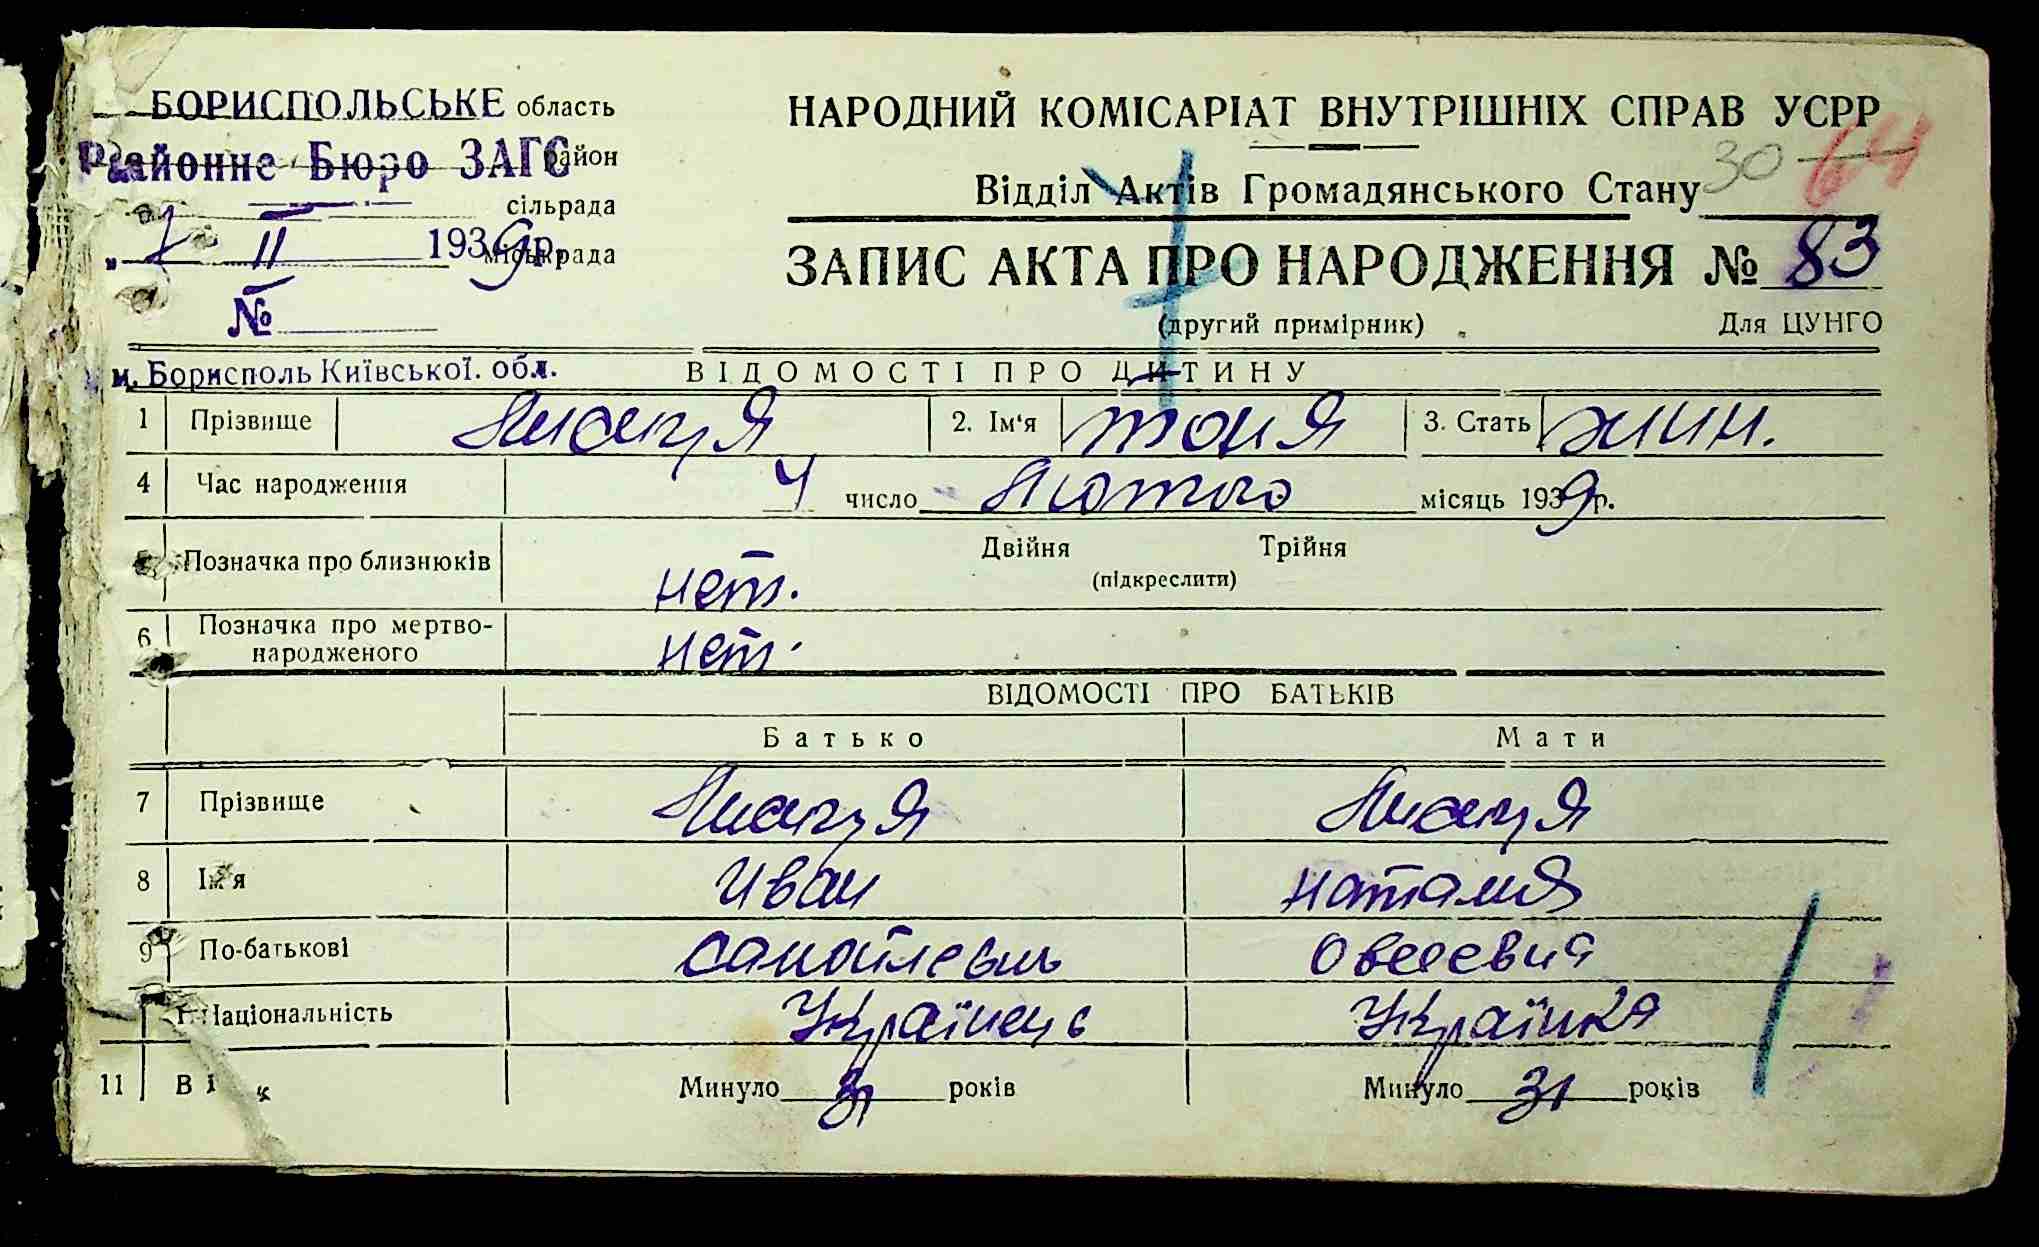 БОРИСПОЛЬСЬКЕ область
Районне Бюро ЗАГС район
сільрада
" 7 " II 1939 р. міськрада
№
м. Борисполь Київської обл.
НАРОДНИЙ КОМІСАРІАТ ВНУТРІШНІХ СПРАВ УСРР
Відділ Актів Громадянського Стану
30 64
ЗАПИС АКТА ПРО НАРОДЖЕННЯ № 83
(другий примірник) Для ЦУНГО
ВІДОМОСТІ ПРО ДИТИНУ
1 Прізвище 2. Ім'я Тоня 3. Стать жин.
4 Час народження 4 число Лютого місяць 1939 р.
5 Позначка про близнюків нет. Двійня Трійня
(підкреслити)
6 Позначка про мертво-
народженого нет.
ВІДОМОСТІ ПРО БАТЬКІВ
Батько Мати
7 Прізвище
8 Ім'я Иван Наталия
9 По-батькові Самойлевич
Національність Українець Українка
11 Вік Минуло 31 років Минуло 31 років